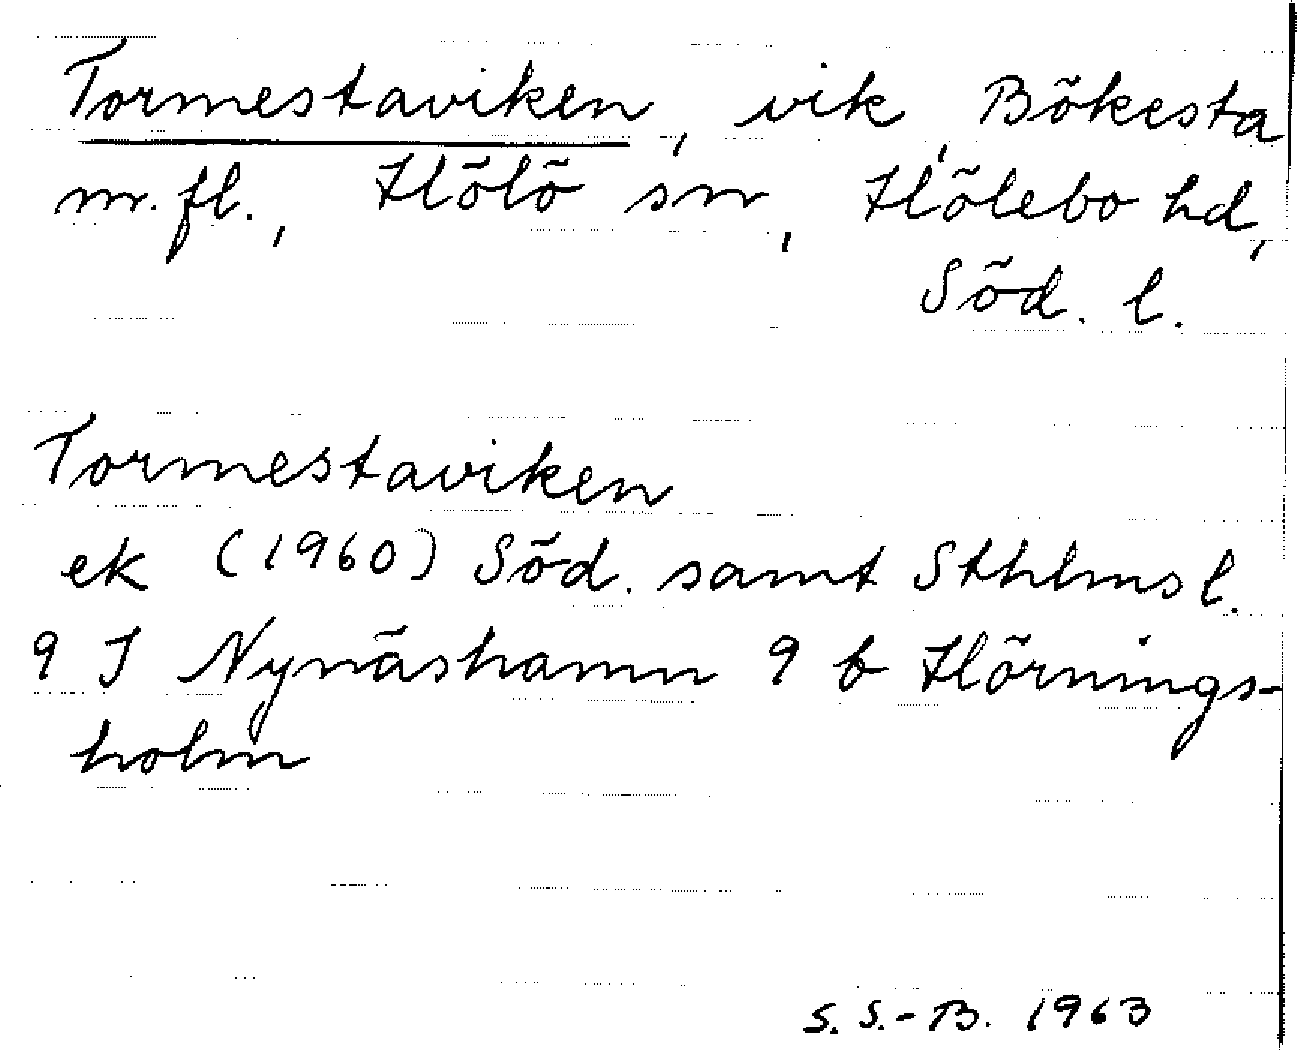 Tormestaviken, vik, Bökesta
m.fl., Hölö sn, Hölebo hd,
Söd. l.
Tormestaviken
ek (1960) Söd. samt Sthlms l.
9 I Nynäshamn 9 b Hörnings-
holm
S.S.-B. 1963